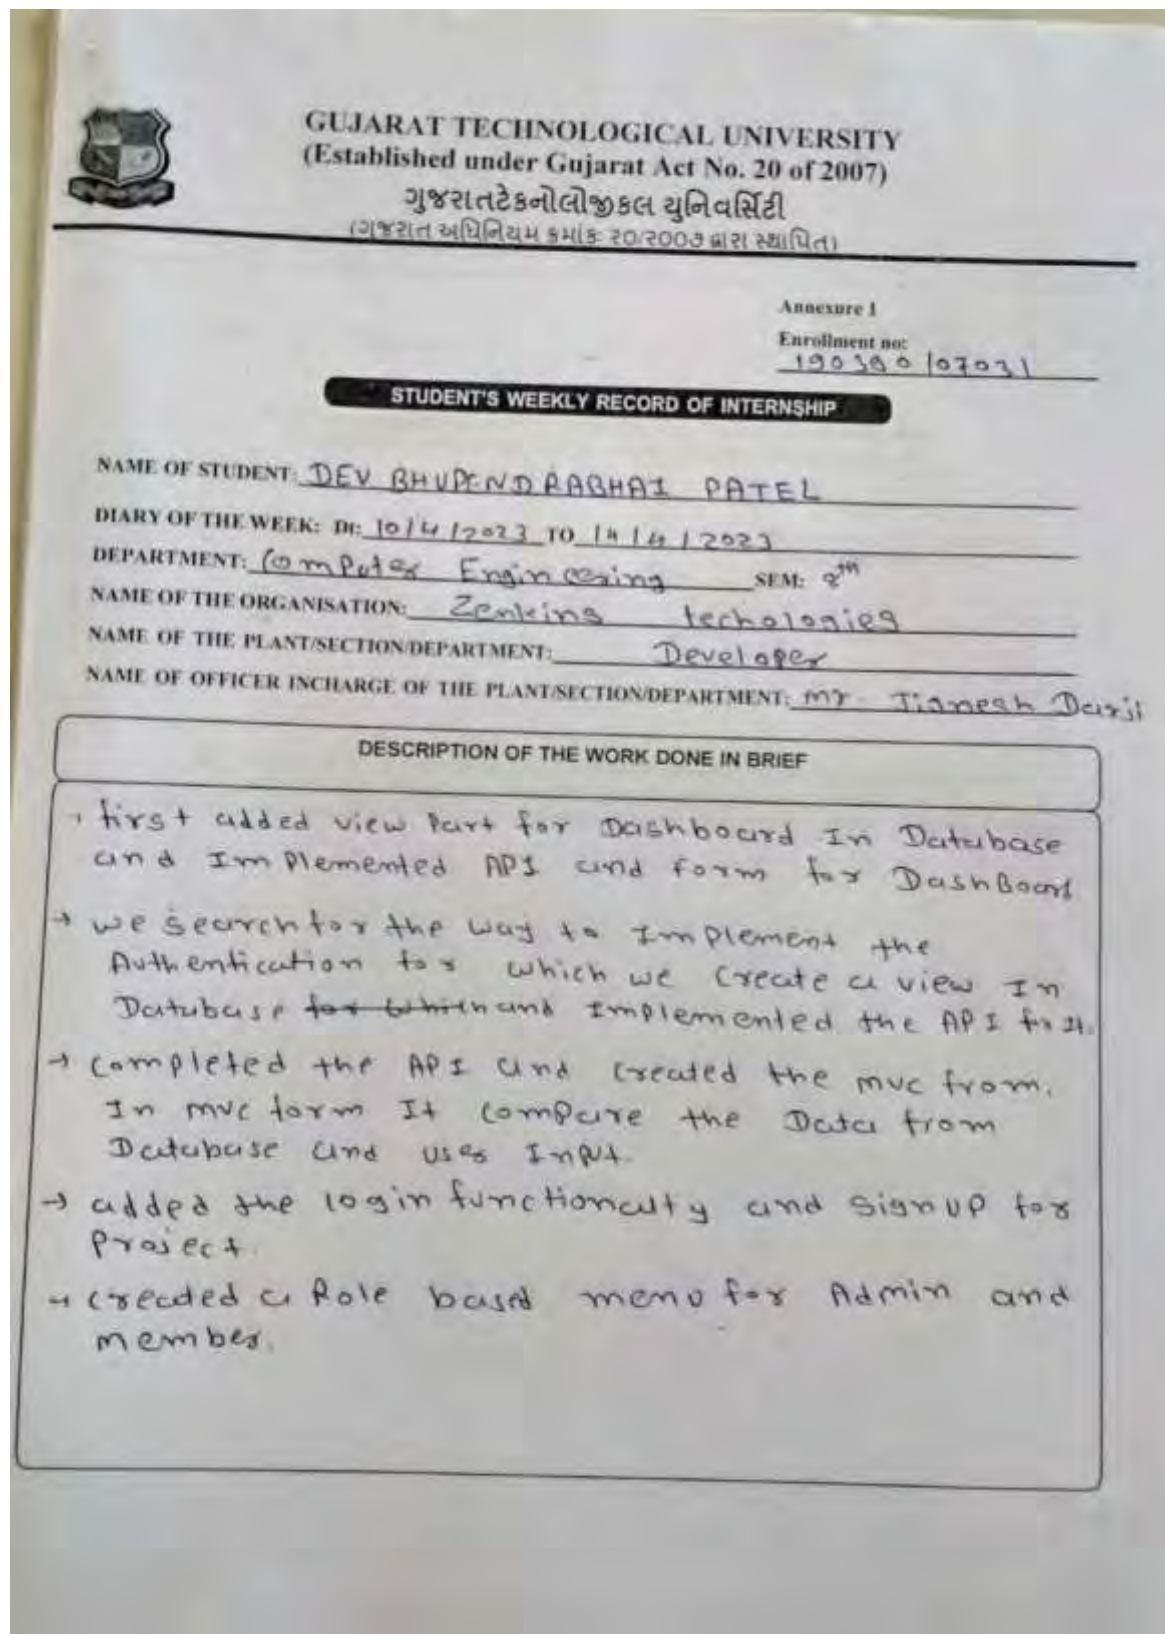 GUJARAT TECHNOLOGICAL UNIVERSITY
(Established under Gujarat Act No. 20 of 2007)
ગુજરાતટેકનોલોજીકલ યુનિવર્સિટી
(ગુજરાત અધિનિયમ ક્રમાંક: ૨૦/૨૦૦૭ દ્વારા સ્થાપિત)
Annexure 1
Enrollment no:
190390107031
STUDENT'S WEEKLY RECORD OF INTERNSHIP
NAME OF STUDENT: DEV BHUPENDRABHAI PATEL
DIARY OF THE WEEK: Dt: 10/4/2023 TO 14/4/2023
DEPARTMENT: Computer Engineering SEM: 8th
NAME OF THE ORGANISATION: Zenkins techologies
NAME OF THE PLANT/SECTION/DEPARTMENT: Developer
NAME OF OFFICER INCHARGE OF THE PLANT/SECTION/DEPARTMENT: Mr. Jignesh Darji
DESCRIPTION OF THE WORK DONE IN BRIEF
first added view Part for Dashboard In Database
and Implemented API and form for DashBoard
→ we search for the way to Implement the
Authentication for which we create a view In
Database for which and Implemented the API for It.
→ completed the API and created the mvc from.
In mvc form It compare the Data from
Database and user Input.
→ added the login functionalty and Sign UP for
Project.
→ created a Role based menu for Admin and
member.